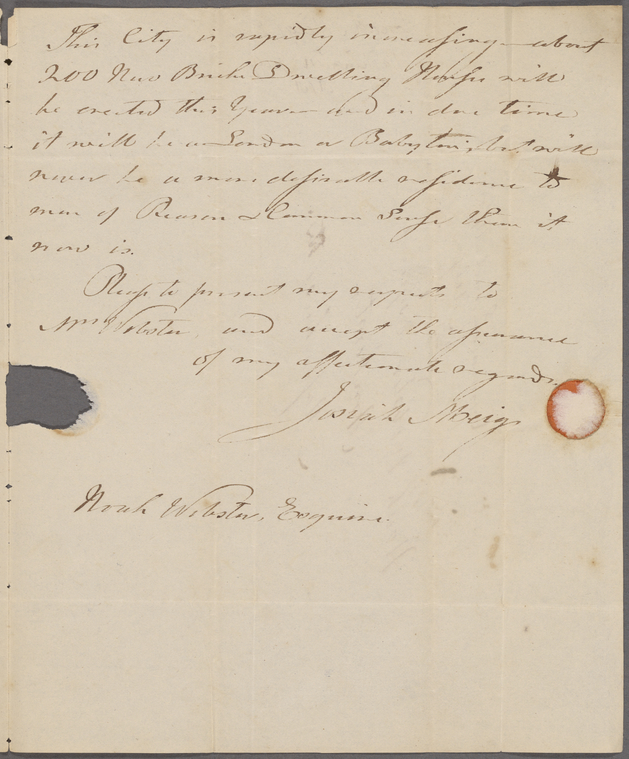 This City is rapidly increasing—about
200 New Brick Dwelling Houses will
be erected this Year—and in due time
it will be a London or Babylon; but will
never be a more desirable residence to
men of Reason & Common Sense than it
now is.
Please to present my respects to
Mrs Webster, and accept the assurance
of my affectionate regards.
Josiah Meigs
Noah Webster, Esquire.